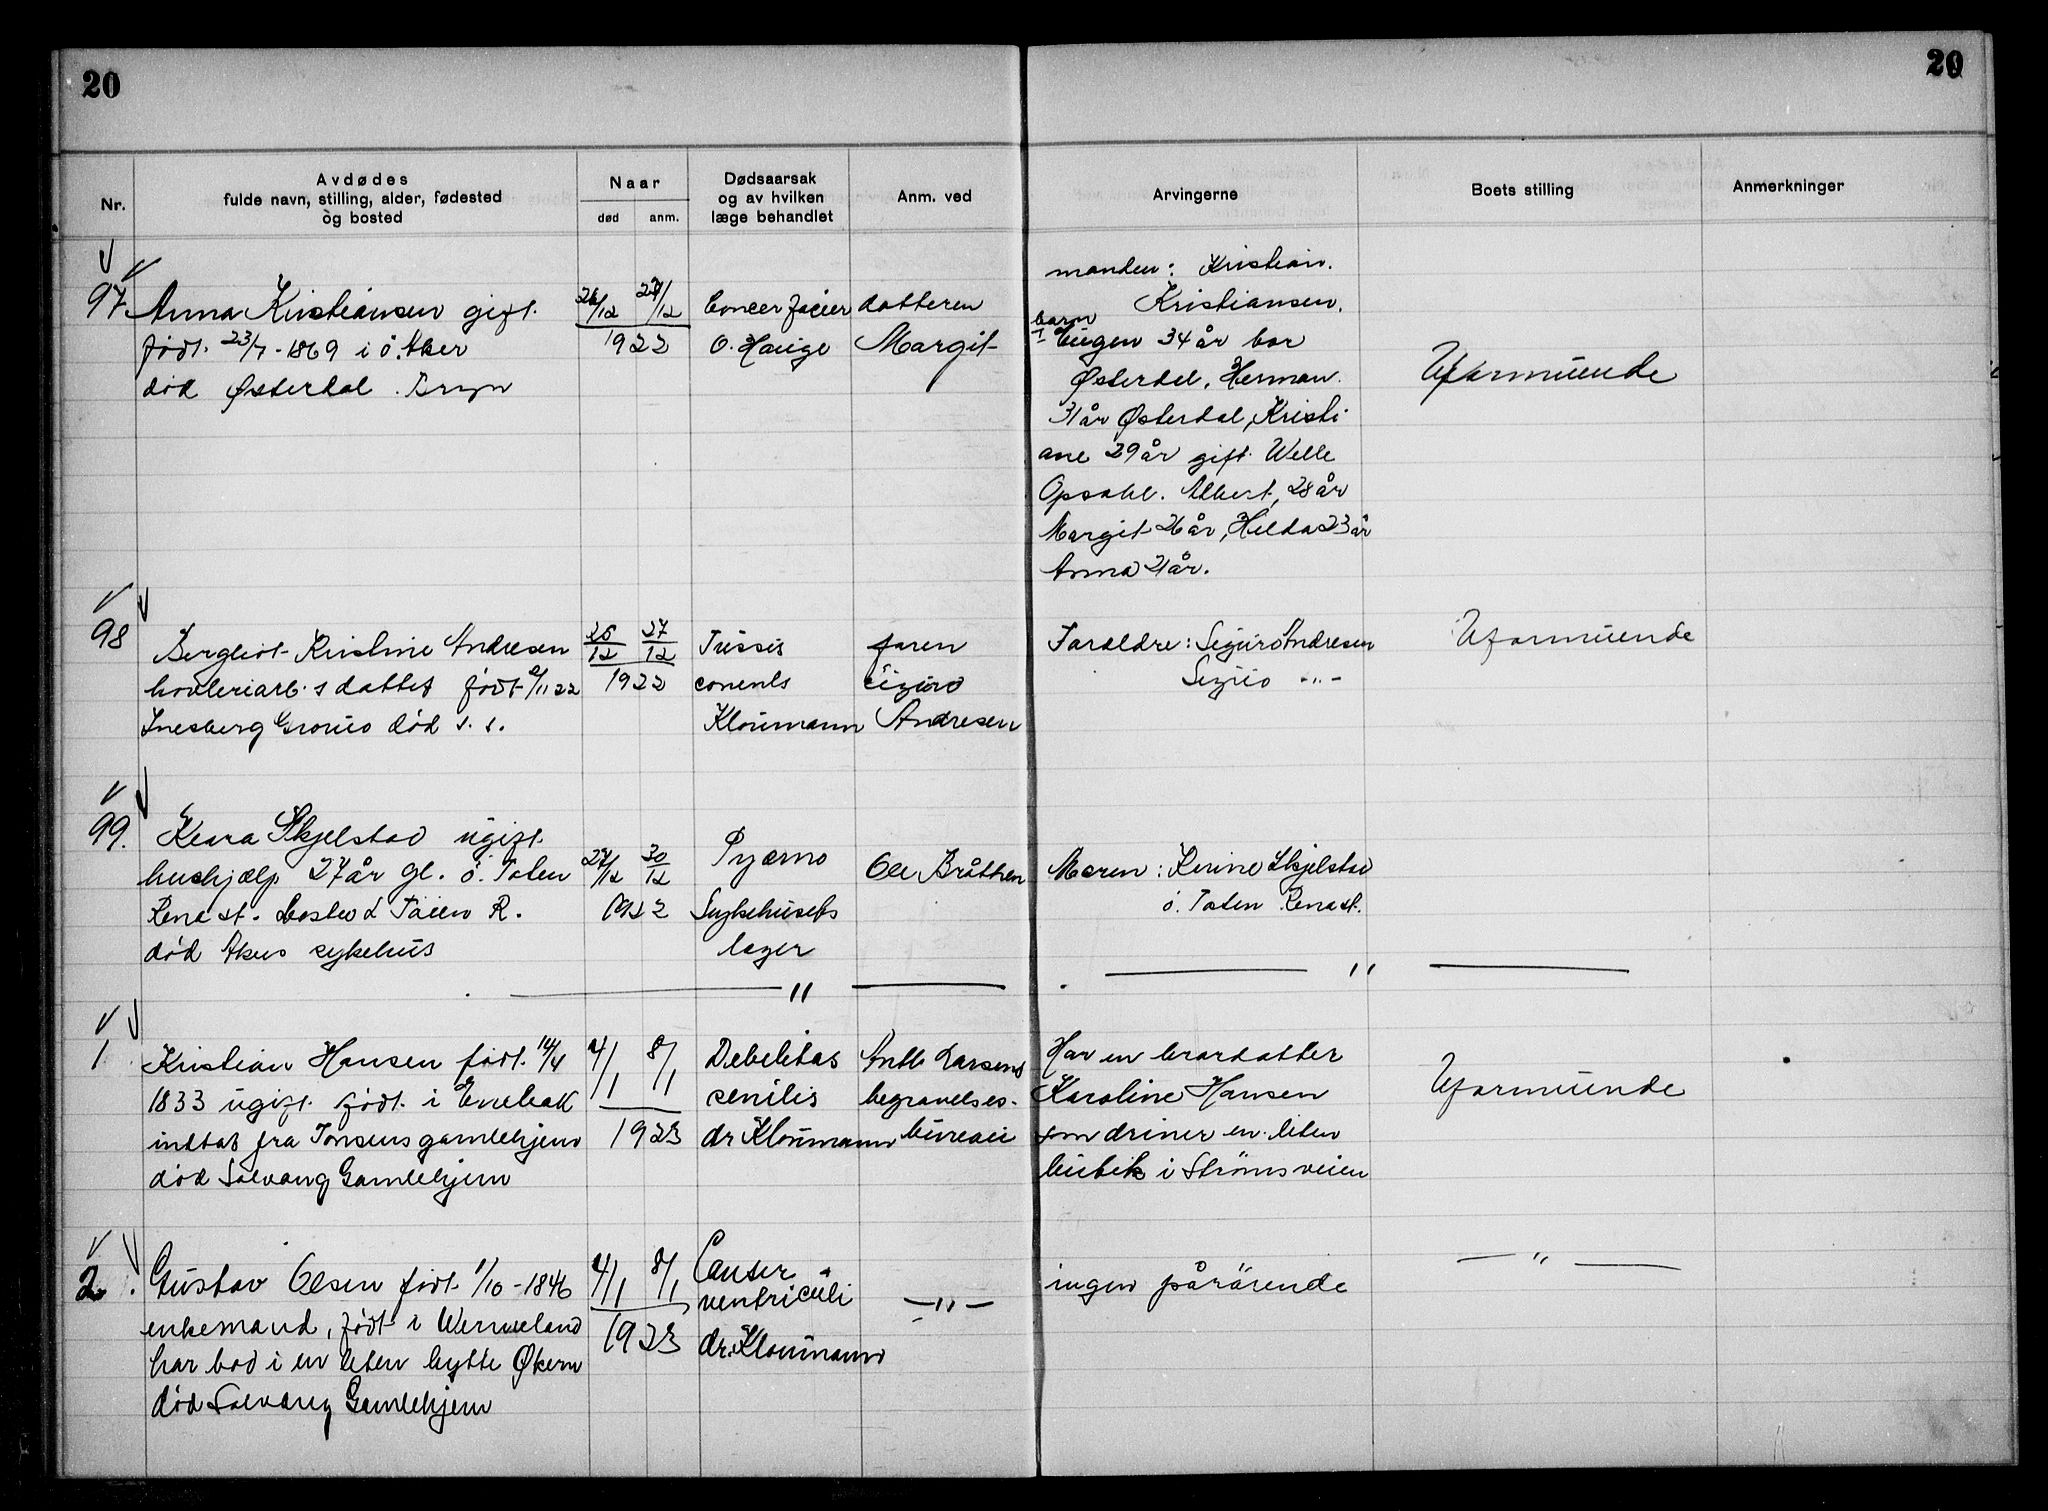 20
20
Nr.
Avdødes
fulde navn, stilling, alder, fødested
og bosted
Naar
død
anm.
Dødsaarsak
og av hvilken
læge behandlet
Anm. ved
Arvingerne
Boets stilling
Anmerkninger
97
Anna Kristiansen gift.
født. 23/7-1869 i ö. Aker
död Østerdal. Bryn
26/12 27/12
1922
Cancer
O. Hauge
datteren
Margit
manden: Kristian.
Kristiansen.
barn
Eugen 34 år bor
Østerdal, Herman.
31 år Østerdal, Kristi
ane 29 år gift. Welle
Opsahl. Albert, 28 år
Margit 26 år, Hilda 23 år
Anna 21 år.
Uformuende
98
Bergliot Kristine Andresen
datter født 2/11 22
Groruo död s. s.
25/12 27/12
1922
Tussis
Kloumann
faren
Sigurd
Andresen
Foreldre: Sigurd Andresen
-"-
Uformuende
99.
Klara Skjelstad ugift.
hushjælp 27 år gl. ö. Toten
Rena st. bosted Töien R.
död Akers sykehus
27/12 30/12
1922
Pyæmo
Sykehusets
læger
Ole Bråthen
Moren: Karine Skjelstad
ö. Toten Rena st.
"
"
1
Kristian Hansen født. 14/4
1833 ugift. født. i Enebak
indtat fra Tonsens gamlehjem
död Solvang Gamlehjem
4/1 8/1
1923
Debelitas
senilis
dr Kloumann
Anth Larsens
begravelses-
bureau
Har en brordatter
Karoline Hansen
som driver en liten
butik i Strömsveien
Uformuende
2.
Gustav Olsen født. 1/10-1846
enkemand, født i Wermeland
har bod i en liten hytte Økern
död Solvang Gamlehjem
4/1 8/1
1923
Canser
ventriculi
dr. Kloumann
-"-
ingen pårörende
-"-